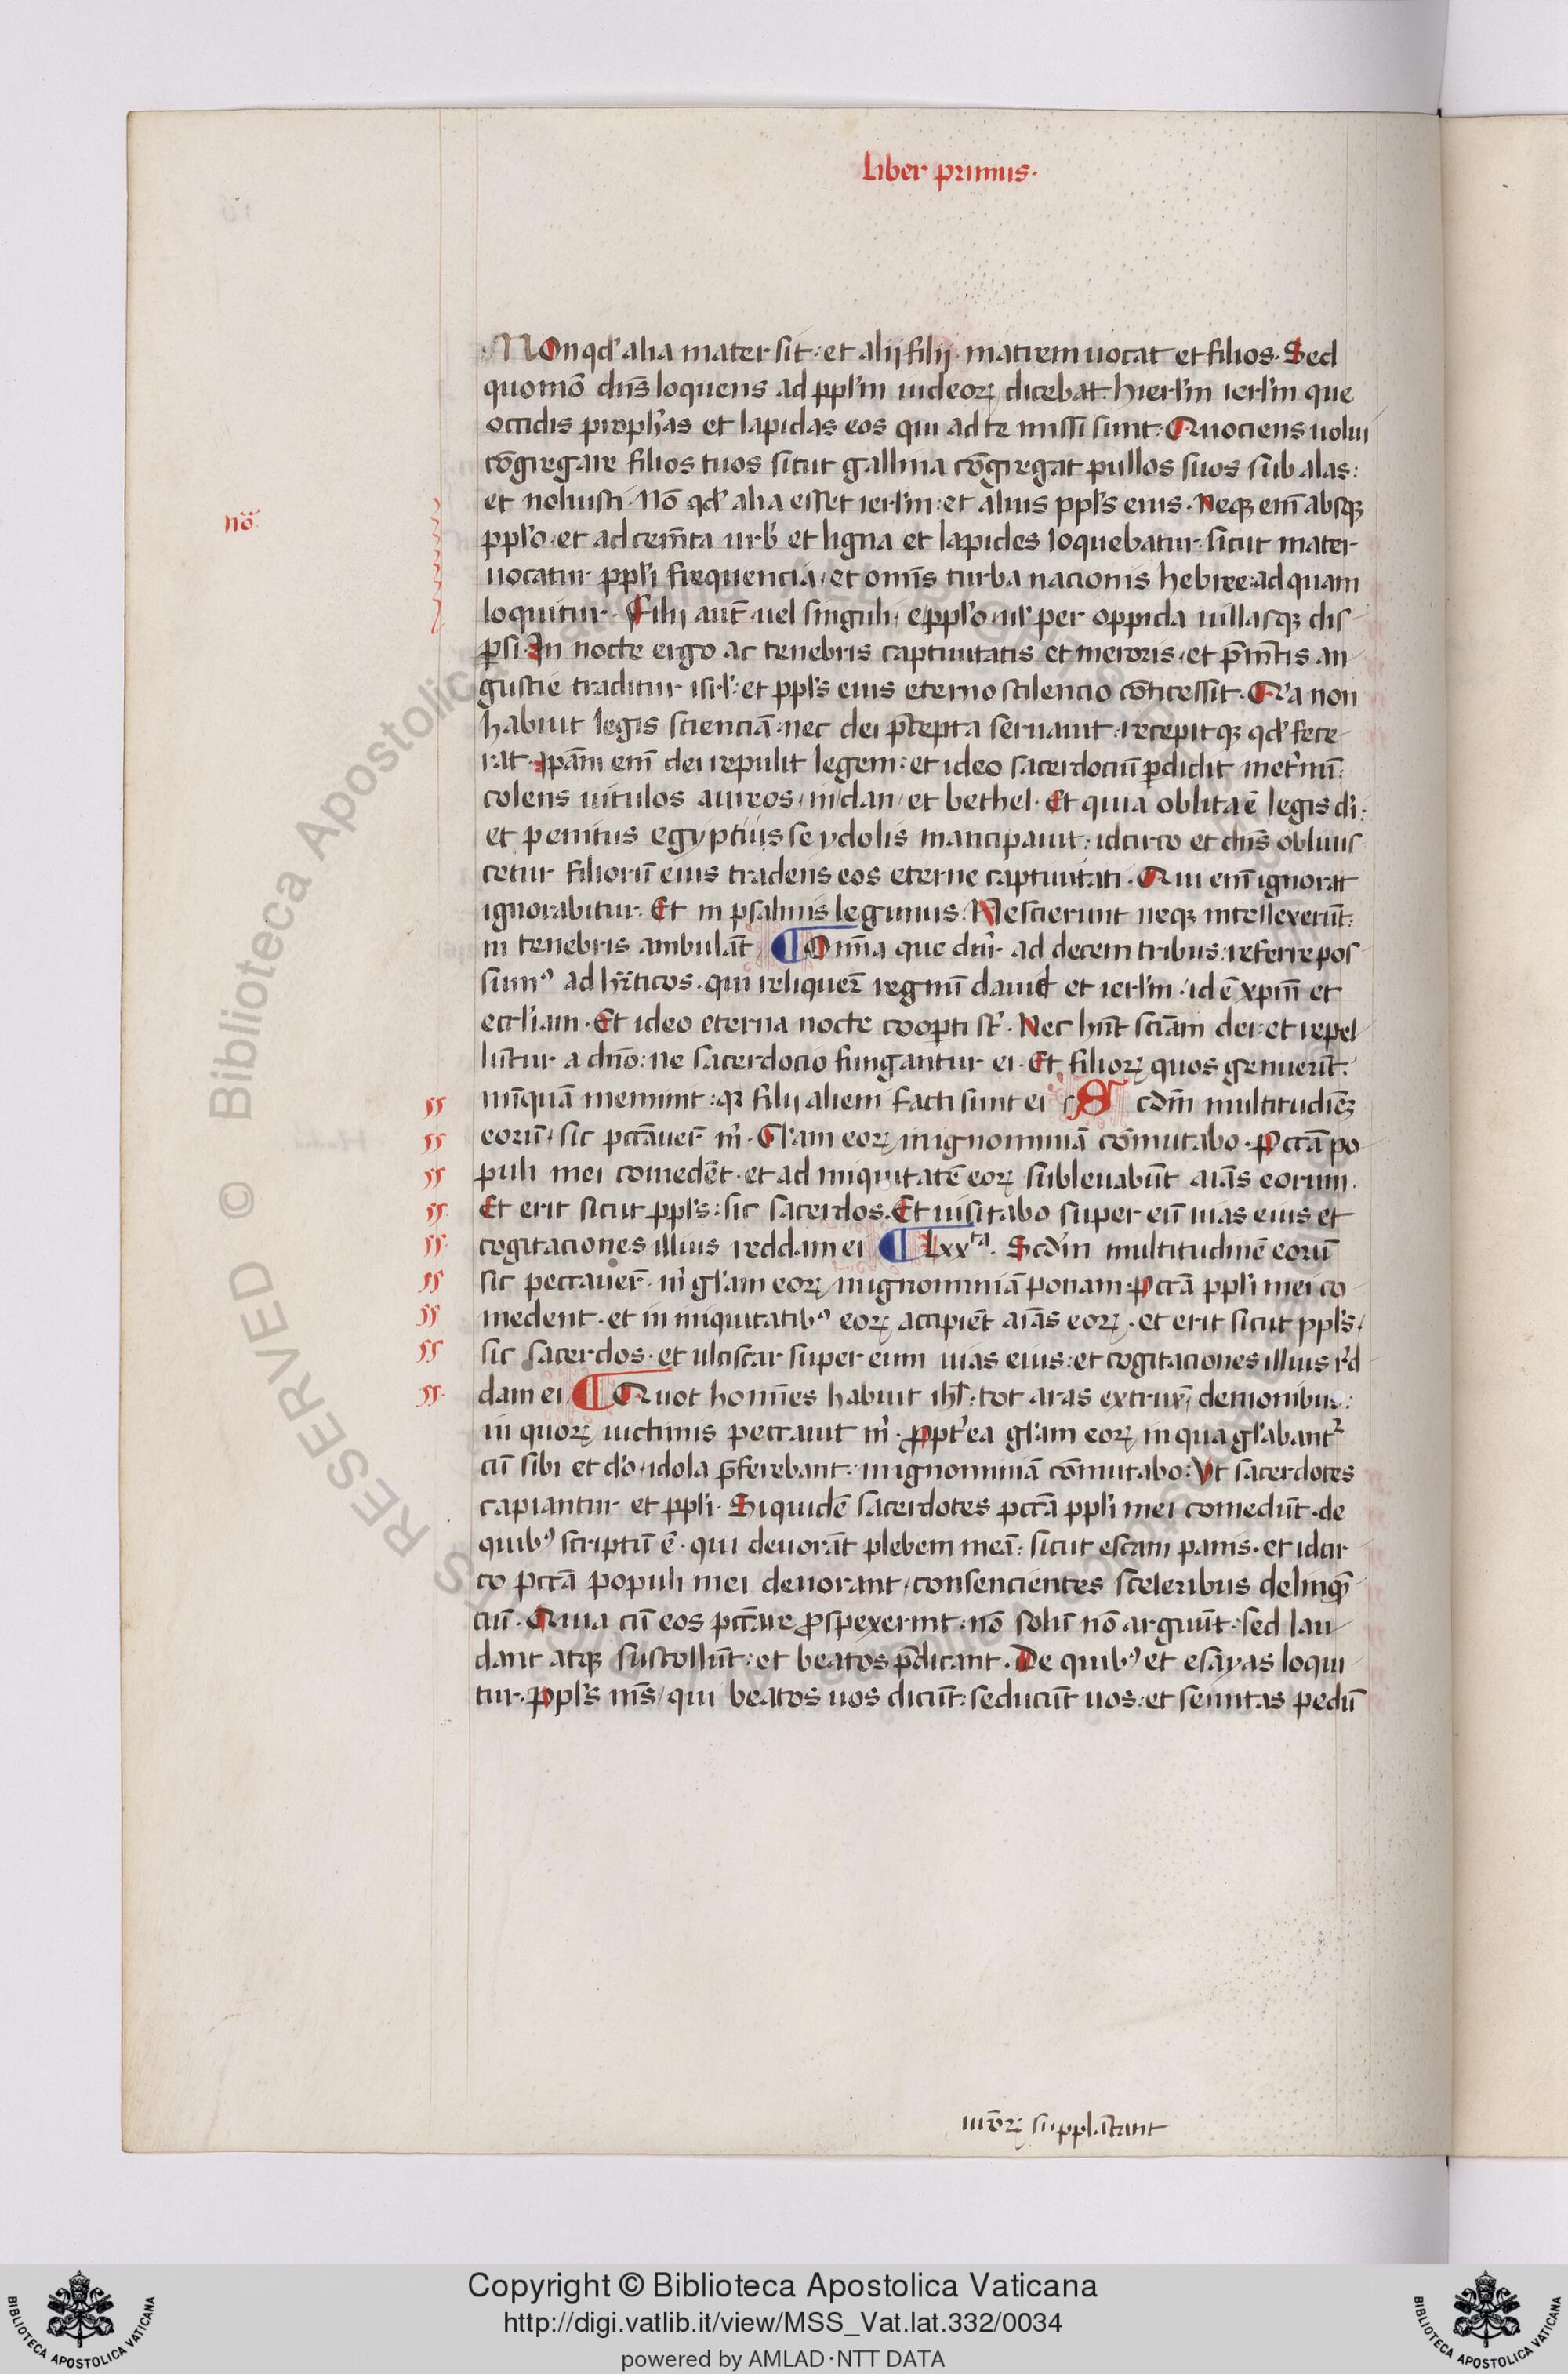 liber primus.
Non qđ alia mater sit: et alij filij. matrem uocat et filios. Sed
quomō dn̄s loquens ad ppl'm iudeoꝝ dicebat: hierl'm ierl'm que
occidis proph'as et lapidas eos qui ad te missi sunt: Quociens uolui
cōgregare filios tuos sicut gallina cōgregat pullos suos sub alas:
et noluisti. Nō qđ alia esset ierl'm: et alius ppl's eius. Neqꝫ em̄ absqꝫ
nō
ppl'o. et ad cem̄ta urb' et ligna et lapides loquebatur: sicut mater
uocatur ppl'i frequencia, et omīs turba nacionis hebree: ad quam
loquitur. Filij aut̄. uel singuli, e ppl'o. ul' per oppida uillasqꝫ dis
ꝑsi. In nocte ergo ac tenebris captiuitatis et meroris, et p̄m̄tis an
gustie traditur isrl': et ppl's eius eterno scilencio cōticessit. Q'a non
habuit legis scienciā. nec dei p̄cepta seruauit. recepitqꝫ qđ fece
rat. Ipām em̄ dei repulit legem: et ideo sacerdociū ꝑdidit met'mū:
colens uitulos aureos, in dan, et bethel. Et quia oblita ē legis dī:
et penitus egyptiis se ydolis mancipauit: idcirco et dn̄s obliuis
cetur filiorū eius tradens eos eterne captiuitati. Qui em̄ ignorat
ignorabitur. Et in psalmis legimus: Nescierunt neqꝫ intellexerūt:
in tenebris ambulāt ¶ Om̄ia que dn̄r ad decem tribus: referre pos
sumꝰ ad hr̄ticos. qui reliquer̄ regnū dauid et ierl'm. id ē xp̄m et
eccl'iam. Et ideo eterna nocte cooꝑti st̄. Nec hn̄t sciām dei: et repel
lūtur a dn̄o: ne sacerdocio fungantur ei. Et filioꝝ quos genuerūt:
nūquā memint: qꝛ filij alieni facti sunt ei Scdm̄ multitudiēꝫ
eorū, sic pccāuer̄ m'. Gl'am eoꝝ in ignominiā cōmutabo. Pccā po
puli mei comedēt. et ad iniquitatē eoꝝ subleuabūt aīas eorum.
Et erit sicut ppl's: sic sacerdos. Et uisitabo super eū uias eius et
cogitaciones illius reddam ei ¶ Lxxta. Scdm̄ multitudinē eorū
sic peccauer̄. m' gl'am eoꝝ in ignominiā ponam. Pccā ppl'i mei co
medent. et in iniquitatibꝰ eoꝝ accipiēt aīas eoꝝ. et erit sicut ppl's,
sic sacerdos. et ulciscar super eum uias eius: et cogitaciones illius r'd
dam ei ¶ Quot homīes habuit ihl'. tot aras extrux̄ demonibus:
in quoꝝ uictimis peccauit m'. ꝓpt'ea gl'am eoꝝ in qua gl'abant'
cū sibi et d'o. idola p̄ferebant: in ignominiā cōmutabo: Vt sacerdotes
capiantur et ppl'i. Siquidē sacerdotes pccā ppl'i mei comedūt. de
quibꝰ scriptū ē. qui deuorāt plebem meā: sicut escam panis. et idcir
co pccā populi mei deuorant, consencientes sceleribus delinq̄
ciū. Quia cū eos pccāre ꝓspexerint. nō solū nō arguūt: sed lau
dant atqꝫ suscollūt: et beatos p̄dicant. De quibꝰ et esayas loqui
tur. Ppl's m̄s, qui beatos uos dicūt: seducūt uos: et semitas pedū
urōꝝ supplātant
Copyright © Biblioteca Apostolica Vaticana
http://digi.vatlib.it/view/MSS_Vat.lat.332/0034
powered by AMLAD·NTT DATA